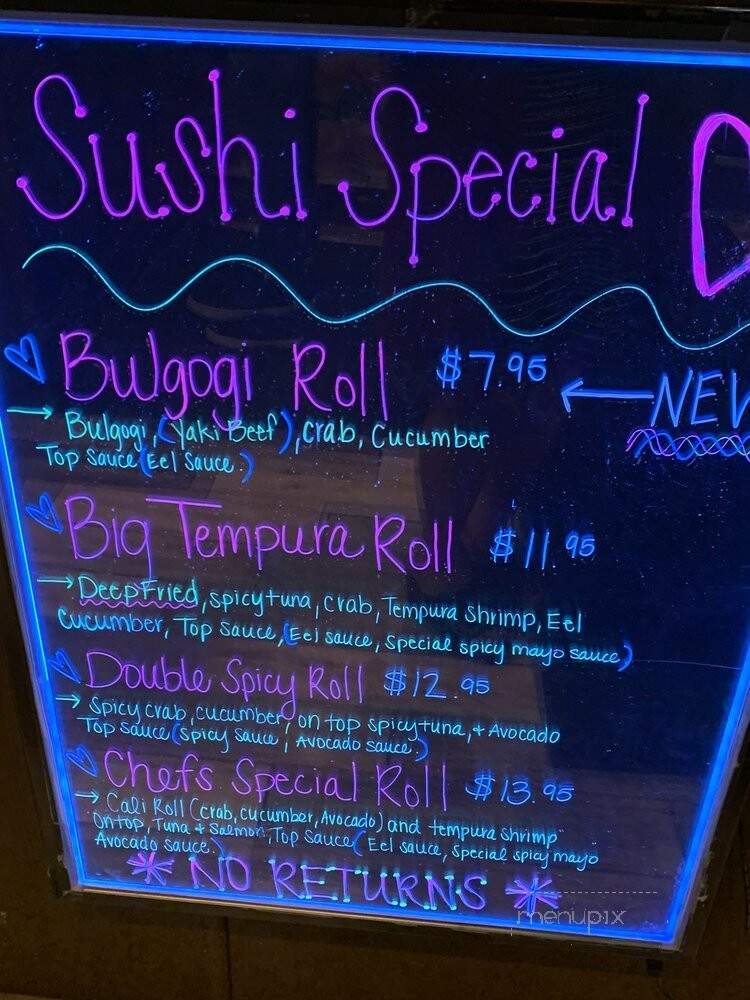 Sushi Special
♡ Bulgogi Roll $7.95 ← NEW
→ Bulgogi, (Yaki Beef), crab, Cucumber
Top Sauce (Eel Sauce.)
♡ Big Tempura Roll $11.95
→ Deep Fried, spicy tuna, crab, Tempura shrimp, Eel
cucumber, Top sauce, (Eel sauce, special spicy mayo sauce)
♡ Double Spicy Roll $12.95
→ Spicy crab, cucumber, on top spicy tuna, + Avocado
Top sauce (spicy sauce, Avocado sauce.)
♡ Chefs Special Roll $13.95
→ Cali Roll (crab, cucumber, Avocado) and tempura shrimp
on top, Tuna + Salmon, Top sauce (Eel sauce, special spicy mayo
Avocado sauce.)
* NO RETURNS *
menupix